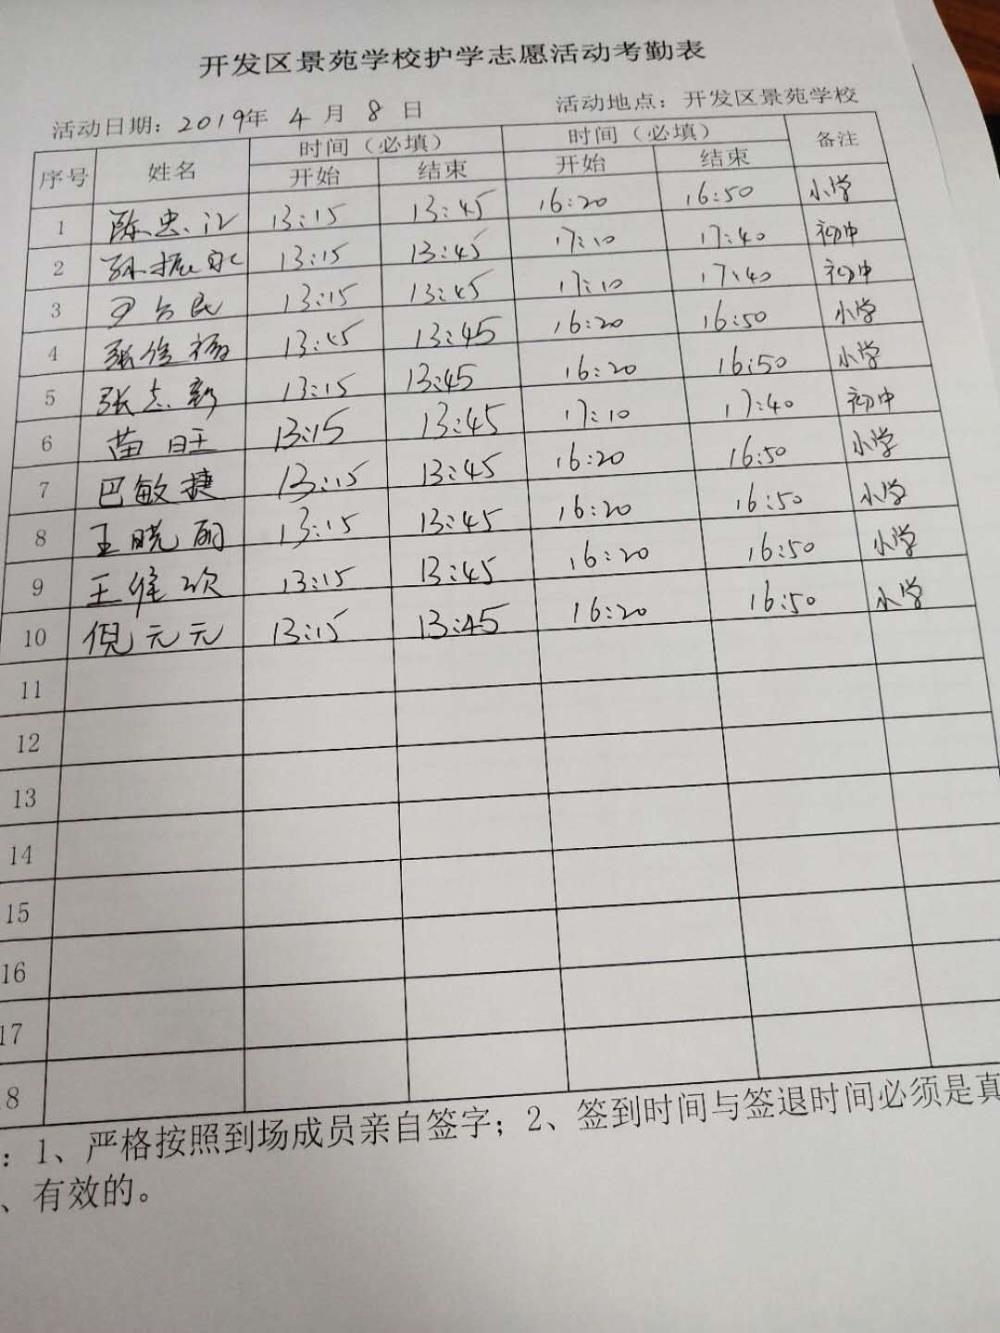 开发区景苑学校护学志愿活动考勤表
活动日期：2019年 4 月 8 日 活动地点：开发区景苑学校
序号 姓名 时间（必填） 时间（必填） 备注
开始 结束 开始 结束
1 陈忠 13:15 13:45 16:20 16:50 小学
2 孙振 13:15 13:45 17:10 17:40 初中
3 尹 民 13:15 13:45 17:10 17:40 初中
4 张 13:45 16:20 16:50 小学
5 张志新 13:15 13:45 16:20 16:50 小学
6 苗旺 13:15 13:45 17:10 17:40 初中
7 巴敏捷 13:15 13:45 16:20 16:50 小学
8 王晓丽 13:15 13:45 16:20 16:50 小学
9 王维欢 13:15 13:45 16:20 16:50 小学
10 倪元元 13:15 13:45 16:20 16:50 小学
11
12
13
14
15
16
17
8
：1、严格按照到场成员亲自签字；2、签到时间与签退时间必须是真
、有效的。